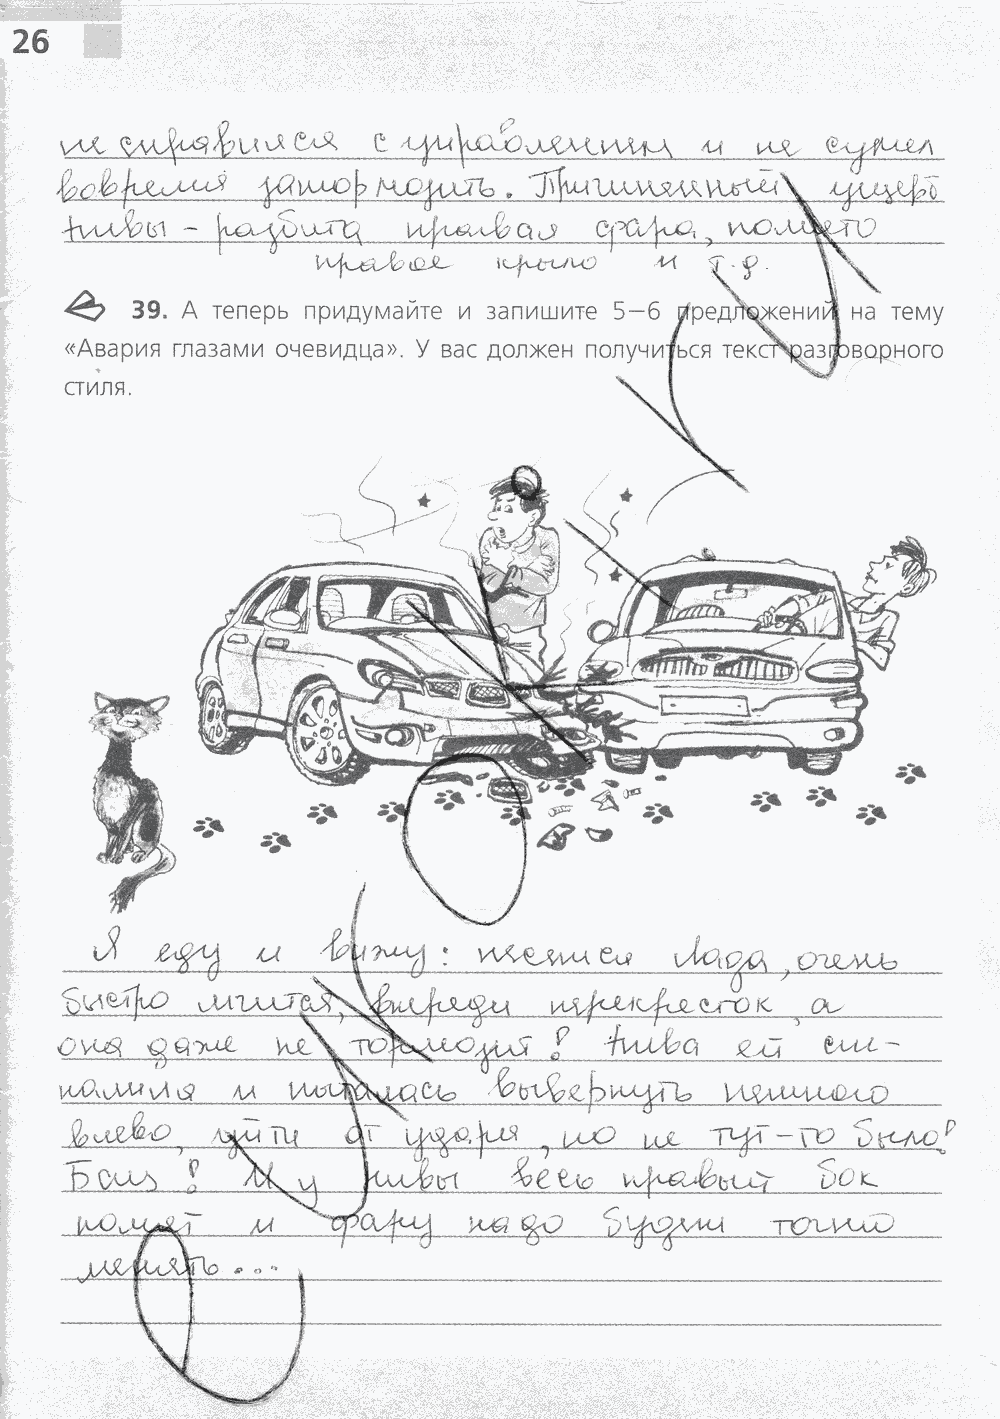 26
не справился с управлением и не сумел
вовремя затормозить. Причиненный ущерб
Нивы - разбита правая фара, помято
правое крыло и т.д.
39. А теперь придумайте и запишите 5–6 предложений на тему
«Авария глазами очевидца». У вас должен получиться текст разговорного
стиля.
Я еду и вижу: несется Лада, очень
быстро мчится, впереди перекресток, а
она даже не тормозит! Нива ей сиг-
налила и пыталась вывернуть немного
влево, уйти от удара, но не тут-то было!
Бац! И у Нивы весь правый бок
помят и фару надо будет точно
менять...